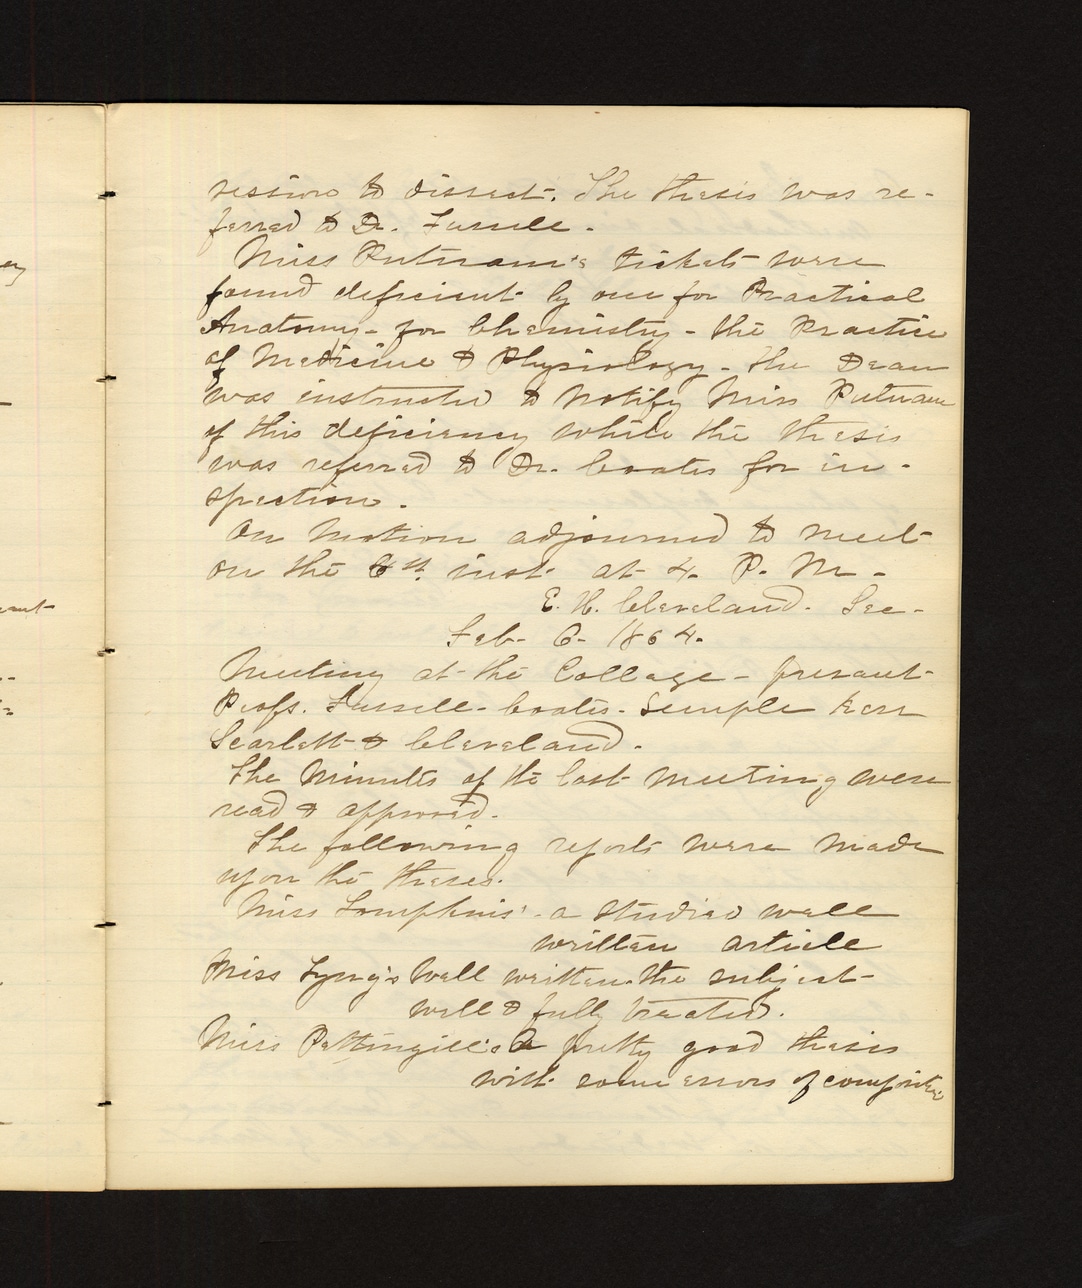 session to dissect. The thesis was re-
ferred to Dr. Fussell.
Miss Putnam's tickets were
found deficient by one for Practical
Anatomy - for Chemistry - the Practice
of Medicine & Physiology - the Dean
was instructed to notify Miss Putnam
of this deficiency while the thesis
was referred to Dr. Coates for in-
spection.
On motion adjourned to meet
on the 6th. inst. at 4. P. M.
E. H. Cleveland. Sec-
Feb. 6. 1864.
Meeting at the College - present
Profs. Fussell - Coates - Semple Kerr
Scarlett & Cleveland.
The Minutes of the last meeting were
read & approved.
The following reports were made
upon the theses.
Miss Tompkins' - a studied well
written article
Miss Lyng's Well written. the subject
well & fully treated.
Miss Pettingill's A pretty good thesis
with some errors of composition